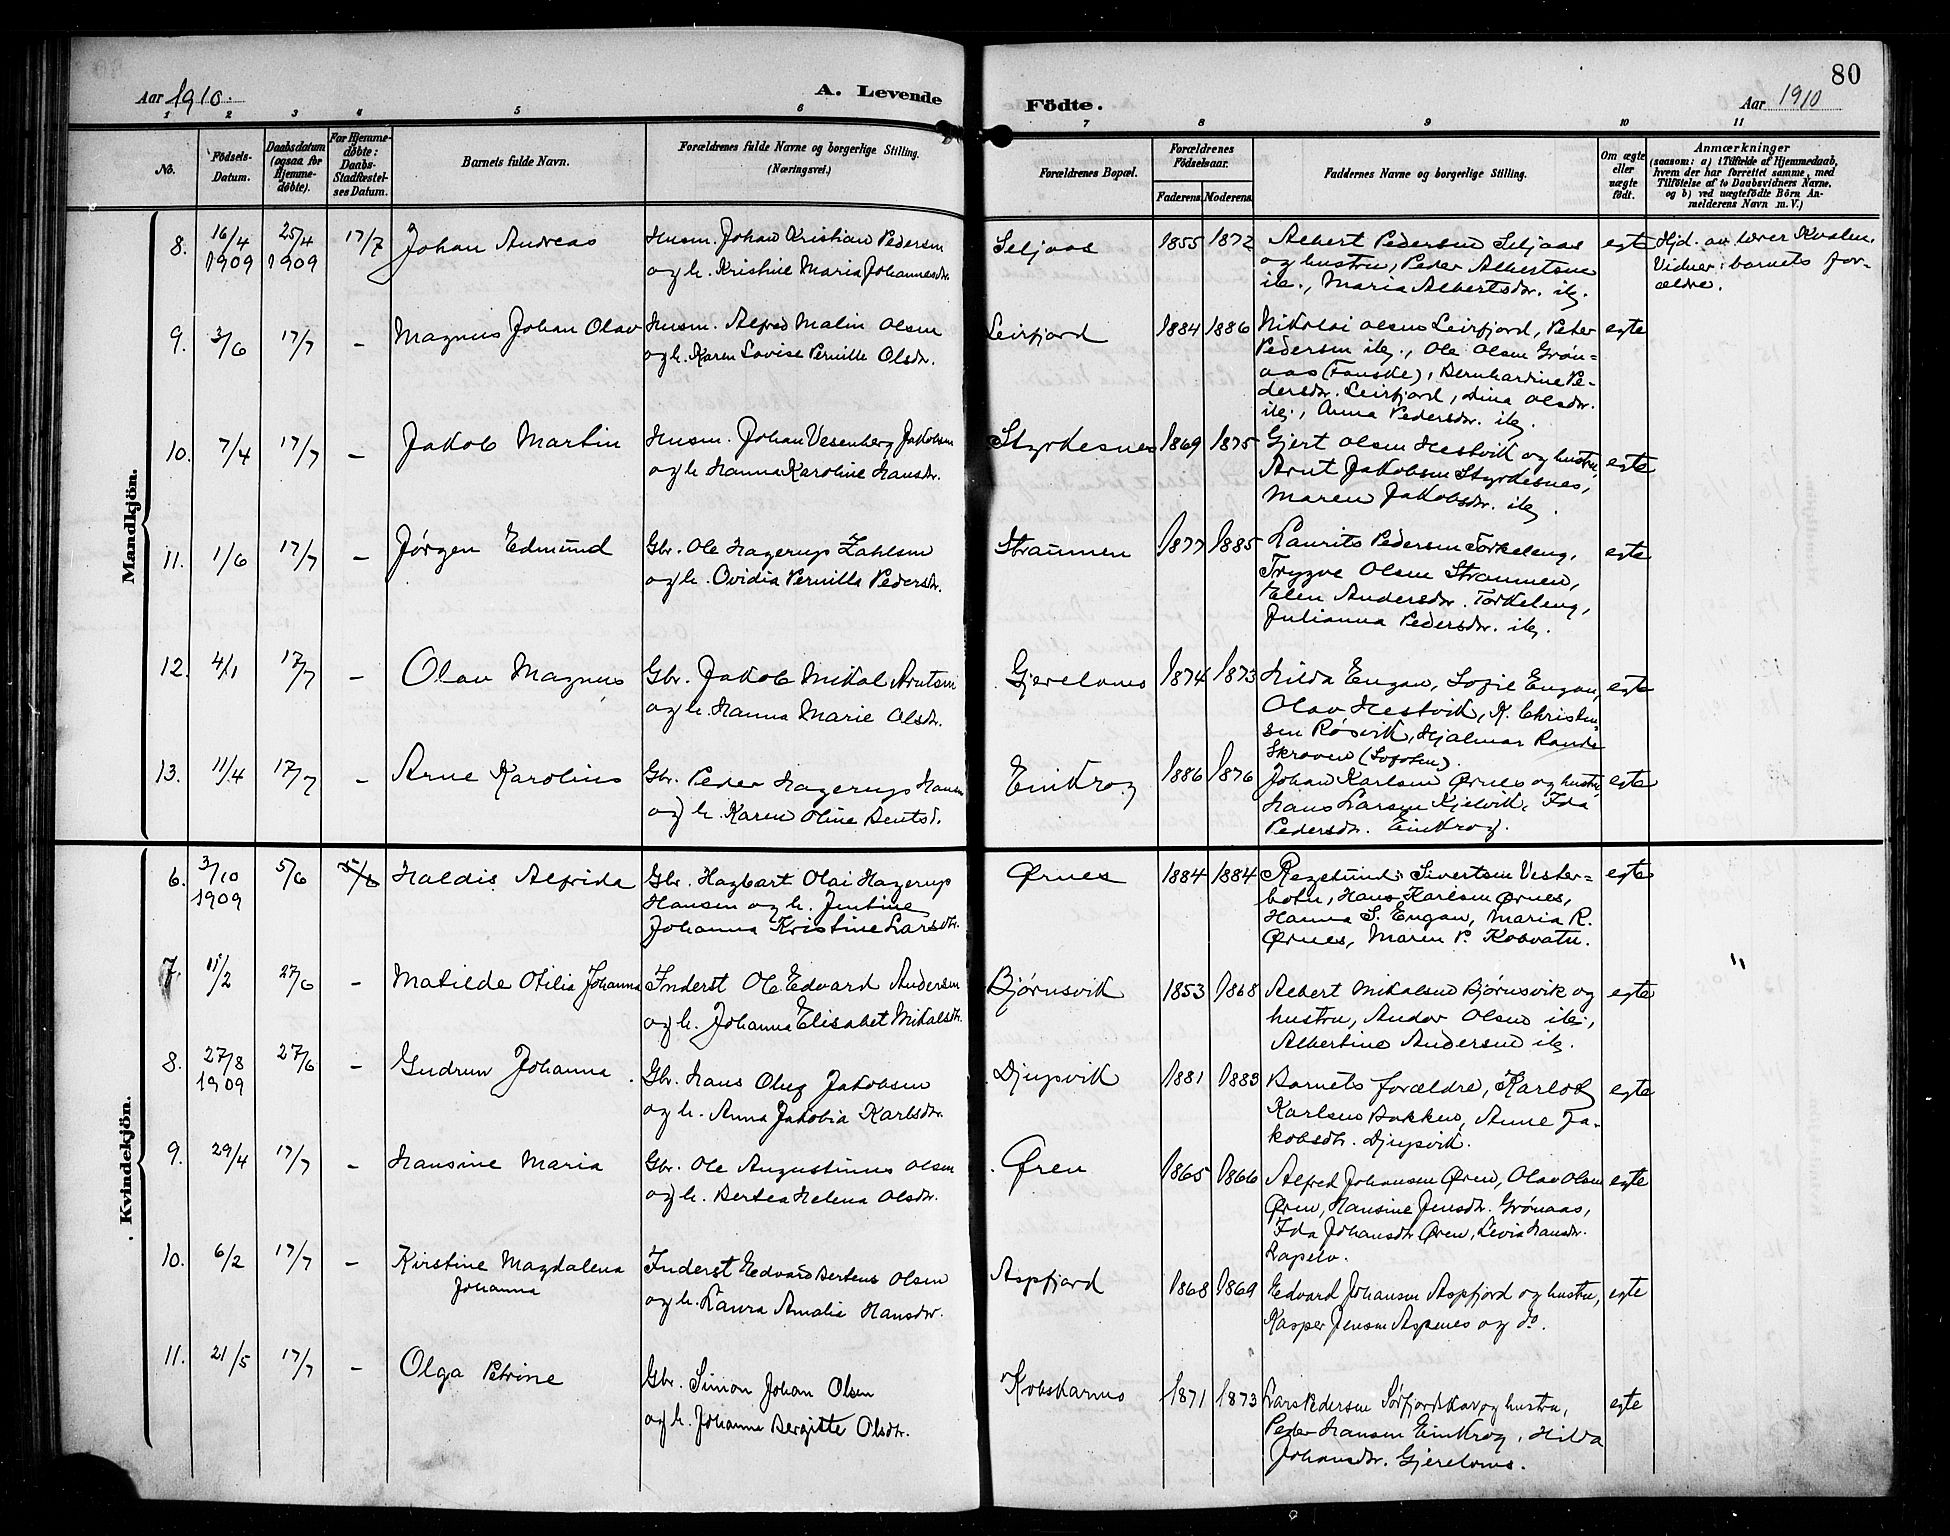 80
Aar 1910.
A. Levende
Födte.
Aar 1910
1 2 3 4 5 6 7 8 9 10 11
No.
Födsels-Datum.
Daabsdatum (ogsaa for Hjemmedøbte).
For Hjemmedøbte: Daabs-Stadfæstelses Datum.
Barnets fulde Navn.
Forældrenes fulde Navne og borgerlige Stilling.
(Næringsvei.)
Forældrenes Bopæl.
Forældrenes Födselsaar.
Faderens. Moderens.
Faddernes Navne og borgerlige Stilling.
Om ægte eller uægte födt.
Anmærkninger
(saasom: a) i Tilfælde af Hjemmedaab,
hvem der har forrettet samme, med
Tilföielse af to Daabsvidners Navne,
og b) ved uægtefödte Börn Anmelderens Navn m. V.)
Mandkjön.
8. 16/4 1909 25/4 1909 17/7 Johan Andreas
Husm. Johan Kristian Pedersen
og h. Kristine Maria Johannesdr.
Seljaas 1855 1872
Albert Pedersen Seljaas
og hustru, Peder Albertsen
ib., Maria Albertsdr. ib.
egte
Hjd. av lærer Kvalen.
Vidner: barnets for-
ældre.
9. 3/6 17/7 - Magnus Johan Olav
Husm. Alfred Malin Olsen
og h. Karen Lovise Pernille Olsdr.
Leirfjord 1884 1886
Nikolai Olsen Leirfjord, Peter
Pedersen ib., Ole Olsen Grøn=
aas (Fauske), Bernhardine Pe-
dersdr. Leirfjord, Lina Olsdr.
ib., Anna Pedersdr. ib.
egte
10. 7/4 17/7 - Jakob Martin
Husm. Johan Vesenberg Jakobsen
og h. Hanna Karoline Hansdr.
Styrkesnes 1869 1875
Gjert Olsen Hestvik og hustru,
Arnt Jakobsen Styrkesnes,
Maren Jakobsdr. ib.
egte
11. 1/6 17/7 - Jørgen Edmund
Gbr. Ole Hagerup Zahlsen
og h. Ovidia Pernilla Pedersdr.
Straumen 1877 1885
Laurits Pedersen Torkeleng,
Trygve Olsen Straumen,
Elen Andersdr. Torkeleng,
Julianna Pedersdr. ib.
egte
12. 4/1 17/7 - Olav Magnus
Gbr. Jakob Mikal Arntsen
og h. Hanna Marie Olsdr.
Gjerelvnes 1874 1873
Hilda Engan, Sofie Engan,
Olav Hestvik, K. Christen
sen Røsvik, Hjalmar
Skroven (Lofoten).
egte
13. 11/4 17/7 - Arne Karolius
Gbr. Peder Hagerup Hansen
og h. Karen Oline Bentsd.
Einkrog 1886 1876
Johan Karlsen Ørnes og hustru,
Hans Larsen Kjelvik, Ida
Pedersdr. Einkrog.
egte
Kvindekjön.
6. 3/10 1909 5/6 5/6 Haldis Alfrida
Gbr. Hagbart Olai Hagerup
Hansen og h. Jentine
Johanna Kristine Larsdtr.
Ørnes 1884 1884
Sivertsen Vester=
botn, Hans Karlsen Ørnes,
Hanna S. Engan, Maria R.
Ørnes, Maren P. Kobvatn.
egte
7. 11/2 27/6 - Matilde Otilia Johanna
Inderst Ole Edvard Andersen
og h. Johanna Elisabet Mikalsdtr.
Bjørnsvik 1853 1868
Albert Mikalsen Bjørnsvik og
hustru, Andor Olsen ib.,
Albertine Andersen ib.
egte "
8. 27/8 1909 27/6 - Gudrun Johanna
Gbr. Hans Oluf Jakobsen
og h. Anna Jakobia Karlsdtr.
Djupvik 1881 1883
Barnets forældre, Karlot
Karlsen Bakken, Anne Ja-
kobsdtr. Djupvik.
egte
9. 29/4 17/7 - Hansine Maria
Gbr. Ole Augustinus Olsen
og h. Bertea Helena Olsdr.
Øren 1865 1866
Alfred Johansen Øren, Olav Olsen
Øren, Hansine Jensdtr. Grønaas,
Ida Johansdtr Øren, Levia Hansdtr.
Lapelv.
egte
10. 6/2 17/7 - Kirstine Magdalena
Johanna
Inderst Edvard Bertens Olsen
og h. Laura Amalie Hansdtr.
Aspfjord 1868 1869
Edvard Johansen Aspfjord og hustru,
Kasper Jensen Aspenes og do.
egte
11. 21/5 17/7 - Olga Petrine
Gbr. Simon Johan Olsen
og h. Johanna Bergitte Olsdtr.
Kobskarmo 1871 1873
Lars Pedersen Sørfjordskar og hustru,
Peder Hansen Einkrog, Hilda
Johansdtr. Gjerelvnes.
egte